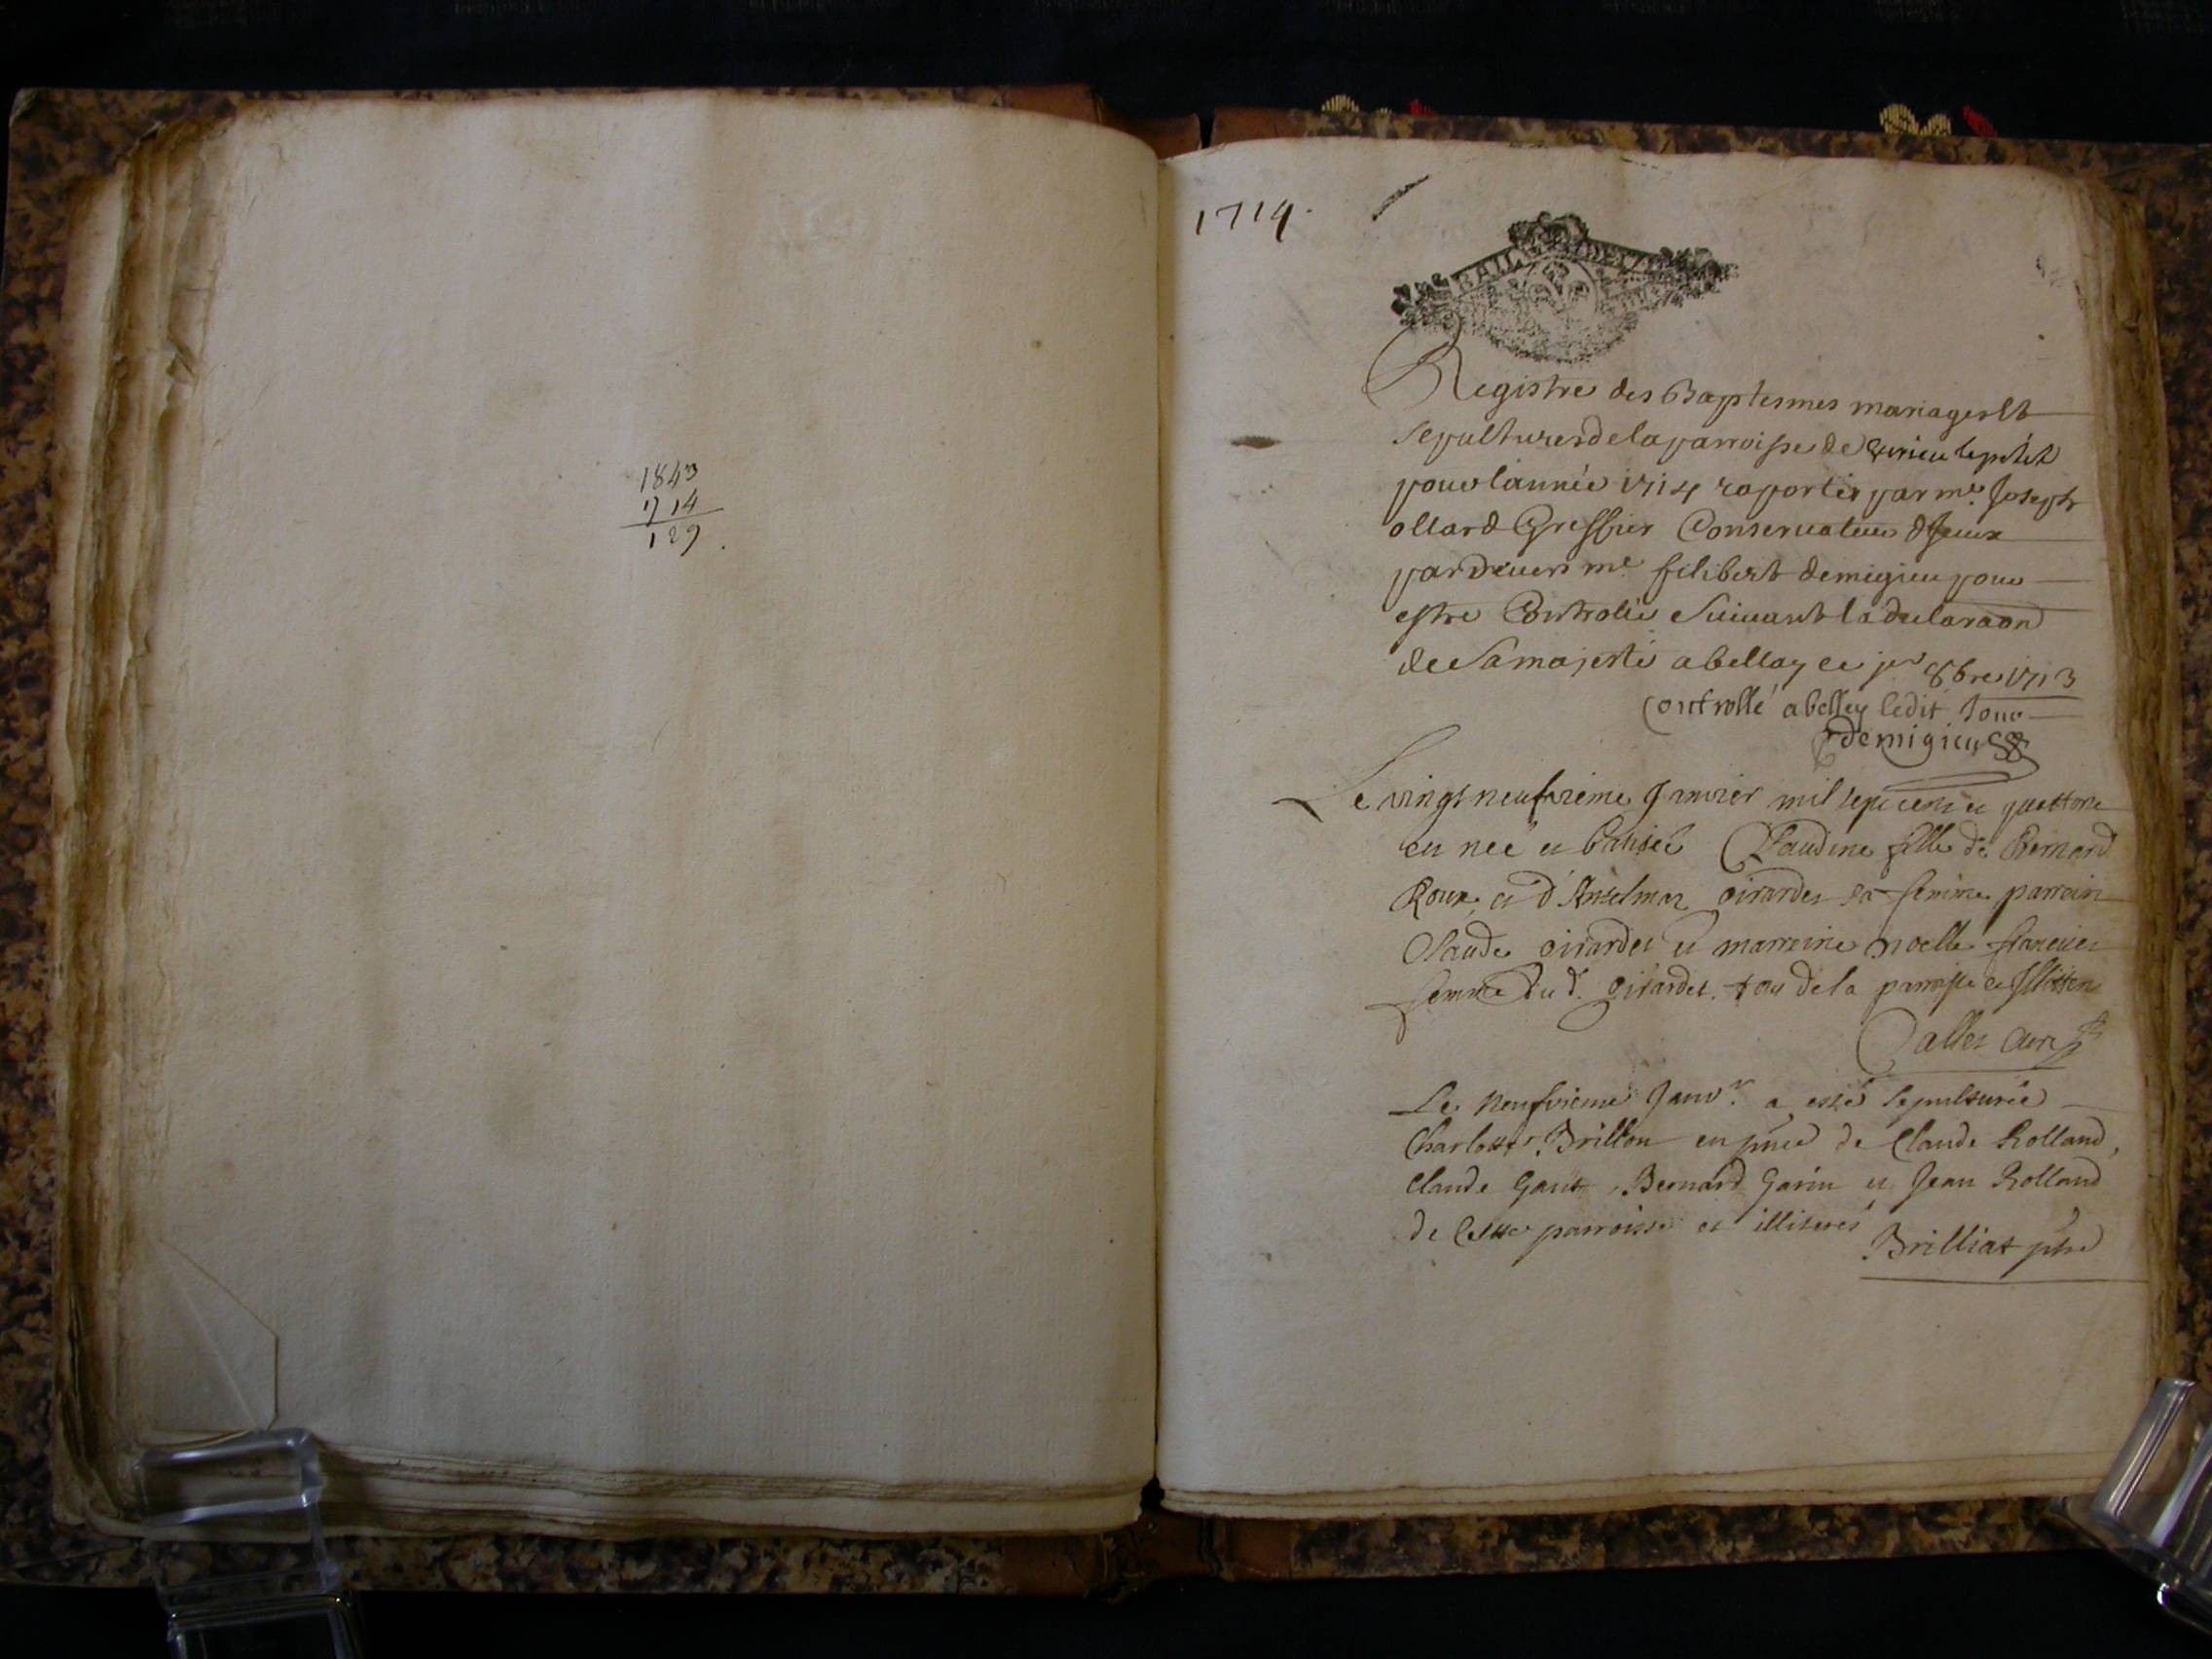 1843
1714
129
1714.
Registre des Baptesmes mariages Et
sepultures de la parroisse de Evrieu le petit
pour lannée 1714 raportés par me. Joseph
ollard Greffier Conservateur
par devers me. filibert demigieu pour
estre Controlle Suivant la declaraon
de Sa majesté a bellay ce jer 8bre 1713
Controllé a belley ledit Jour
demigieu
Le vingt neufvieme Janvier mil sept cent et quattorze
est neé et batiseé Claudine fille de Bernard
Roux, et d'Anselmaz girardet sa femme parrain
Claude girardet et marreine noelle
femme dud. girardet. tous de la parroisse et
Callet Curé
Le Neufvieme Janvr. a esté sepulturée
Charlotte Brillon en pnce de Claude Rolland,
Claude Gant, Bernard Garin et Jean Rolland
de Cette parroisse et illiterés
Brilliat ptre